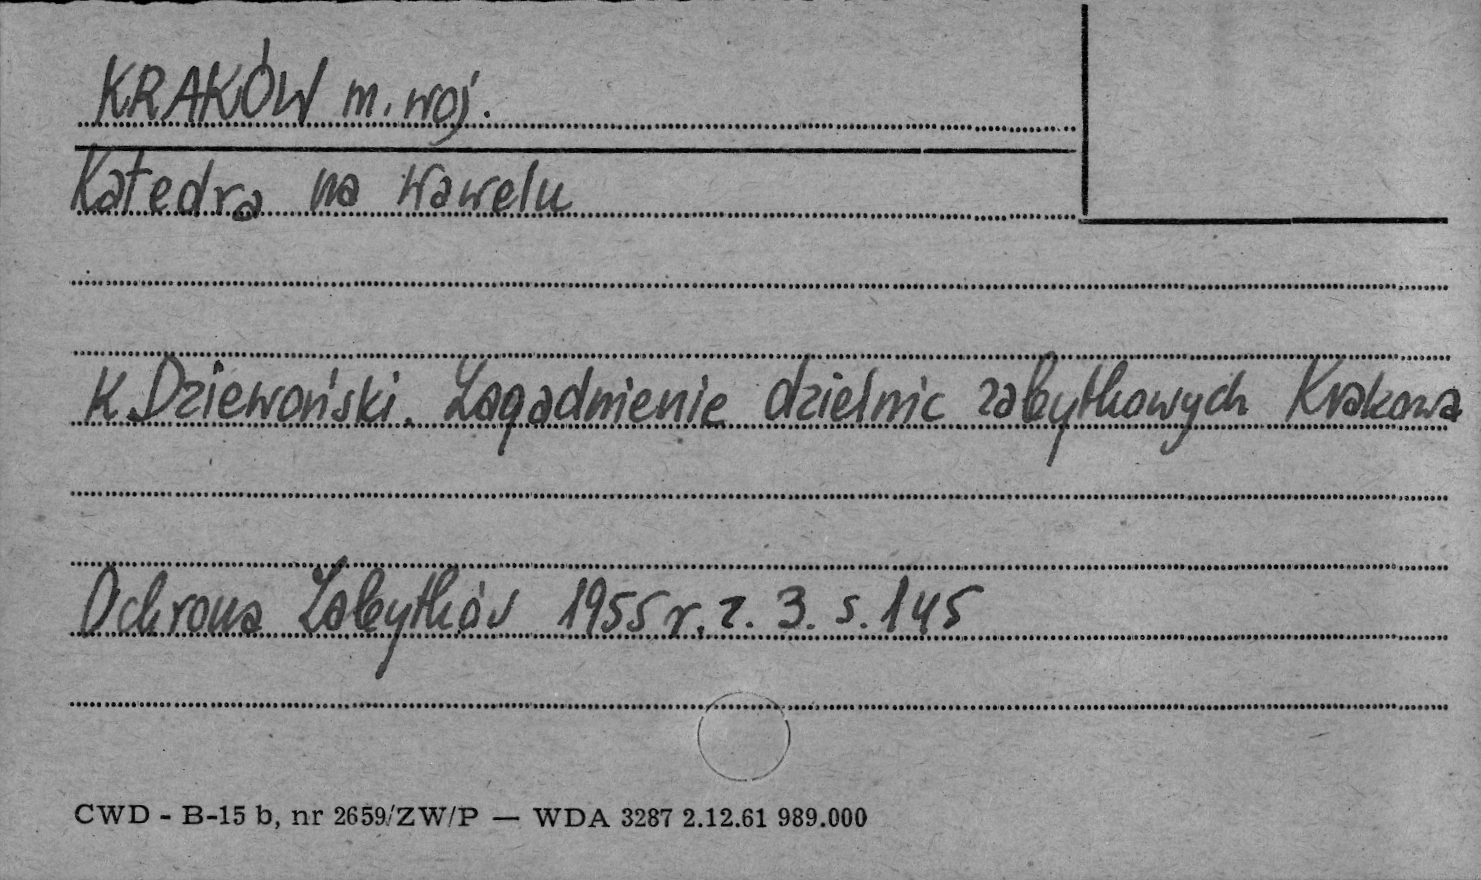 KRAKÓW m. woj.
Katedra na Wawelu
K. Dziewoński. Zagadnienie dzielnic zabytkowych Krakowa
Ochrona Zabytków 1955 r. z. 3. s. 145
CWD - B-15 b, nr 2659/ZW/P — WDA 3287 2.12.61 989.000